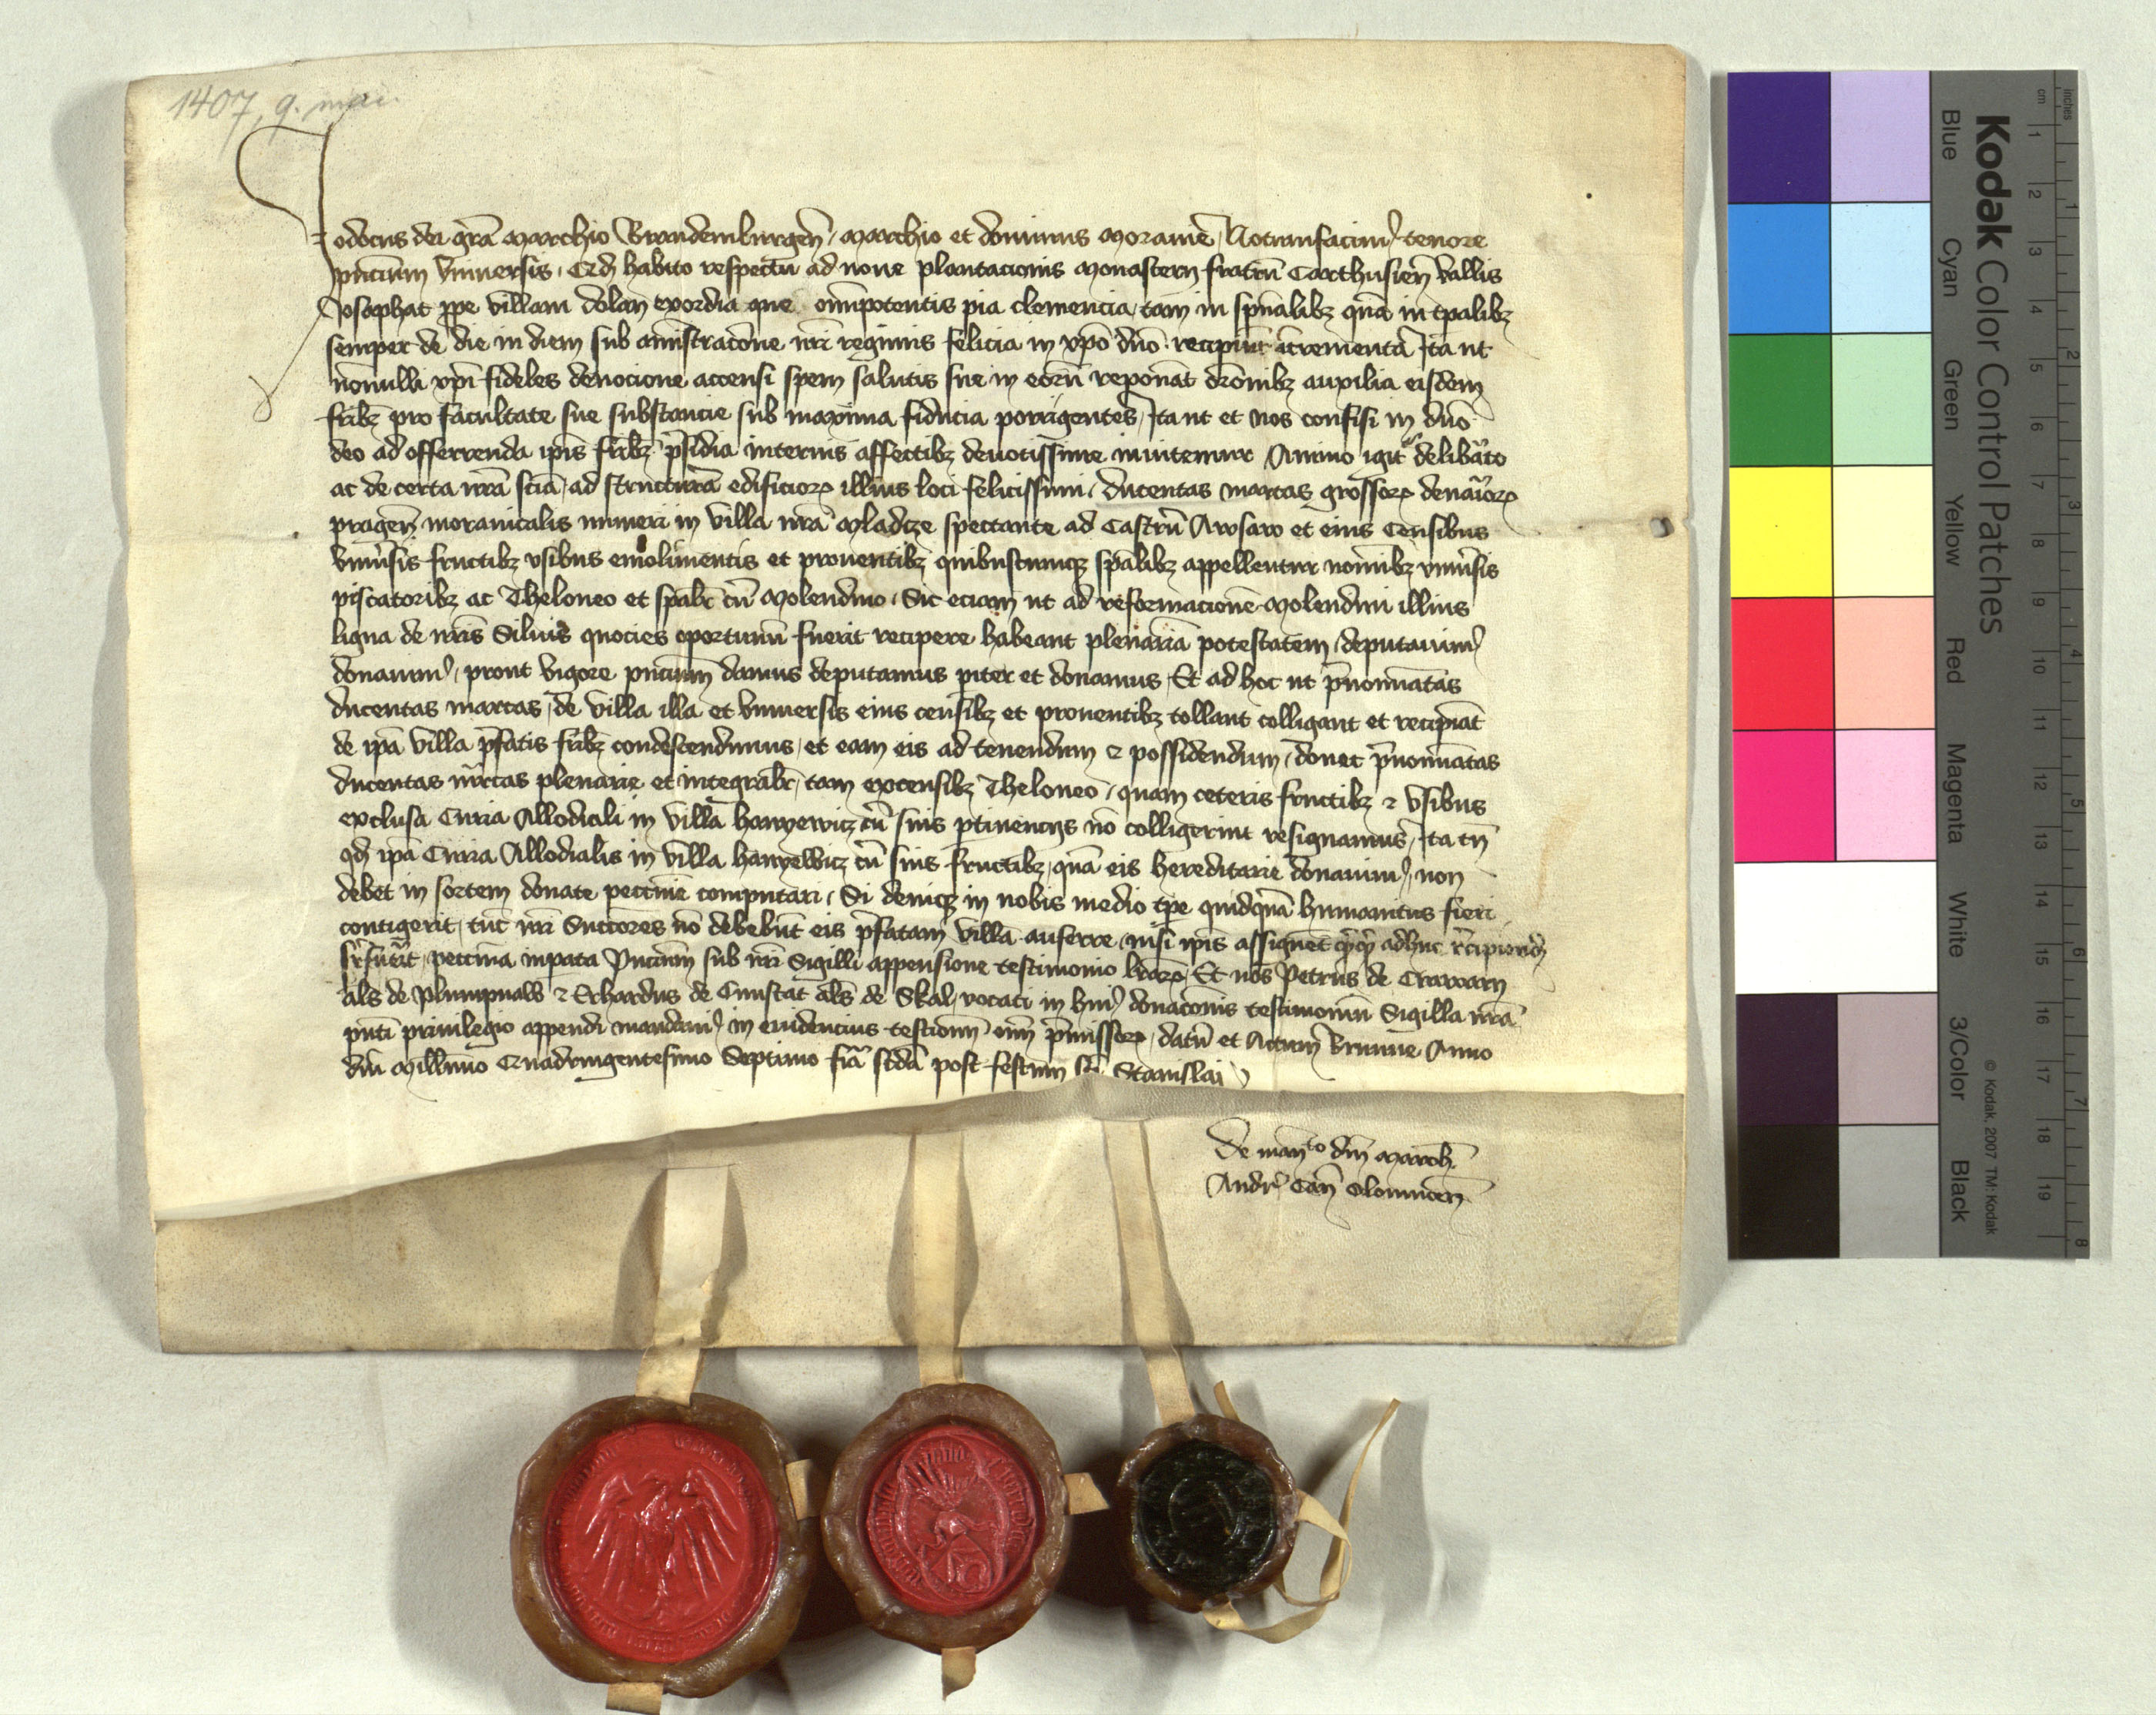 1407, 9. mai.
Jodocus dei grā Marchio Brandemburgeñ, Marchio et dominus Moravie, Notumfacim⁹ tenore
pñcium Vniuersis, Qđ habito respectu ad noue plantacionis Monasterij fratrū Carthusieñ vallis
Josophat ꝓpe villam dolan exordia que omīpotentis pia clemencia, tam in spūalibꝫ quā in tꝑalibꝫ
semper de die in diem sub amīstracōne nrī regiminis felicia in xp̄o dño recipiūt īcrementa Ita ut
nōnulli xp̄i fideles deuocione accensi spem salutis sue in eorū reponāt orōnibꝫ auxilia eisdem
fribꝫ pro facultate sue substancie sub maxima fiducia porrigentes, Ita ut et nos confisi in dño
deo ad offerrenda ip̄is fribꝫ p̄sidia internis affectibꝫ deuotissime inuitemur Animo igit᷑ delibāto
ac de certa nrā sciā, ad structurā edificioꝝ illius loci felicissimi, ducentas marcas grossoꝝ denarioꝝ
pragen̄ morauicalis numeri in villa nrā Mladcze spectante ad Castrū Arosaw et eius Censibus
vniūsis fructibꝫ vsibus emolimentis et prouentibꝫ quibuscumqꝫ sp̄alibꝫ appellentur nomībꝫ vniūsis
piscatoribꝫ ac Theloneo et sp̄alr̄ cū Molendino, Sic eciam ut ad reformacionē Molendini illius
ligna de nr̄is Siluis quocies oportunū fuerit recipere habeant plenariā potestatem, deputauim⁹
donauim⁹, prout vigore pñcium damus deputamus pīter et donamus, Et ad hoc ut p̄nomīatas
ducentas marcas, de villa illa et vniuersis eius censibꝫ et prouentibꝫ tollant colligant et recipiāt
de ip̄a villa p̄fatis fribꝫ condescendimus, et eam eis ad tenendum ⁊ possidendum, donec p̄nomīatas
ducentas m̄rcas plenarie et integralr̄, tam excensibꝫ Theloneo, quam ceteris fructibꝫ ⁊ vsibus
exclusa Curia Allodiali in villa hanyewicz cū suis ꝑtinencijs nō colligerint resignamus, Ita tñ
qđ ip̄a Curia Allodialis in villa hanyewicz cū suis fructibꝫ, quā eis hereditarie donauim⁹, non
debet in sortem donate peccunie computari, Si deniqꝫ in nobis medio tꝑe quidquā humanitus fieri
contigerit, tūc nr̄i Succōres nō debebūt eis p̄fatam villā auferre, nisi ip̄is assignēt adhuc r̄cipiend̄
peccunia Pn̄cium sub nr̄i Sigilli appensione testimonio lrāꝝ, Et nos Petrus de Crawarn
als̄ de Plumpnaw ⁊ Erhardus de Cunstat als̄ de Skal, vocati in hui⁹ donacōnis testimoniū Sigilla nr̄a
pn̄ti priuilegio appendi mandaui⁹ in euidencius testimoniū oīm p̄missoꝝ, datū et Actum Brunne Anno
dñi Millīmo Quadringentesimo Septimo fīa scđa post festum scī Stanislai
De man̄to dñi March̄
Andr̄ Can̄ Olomucen̄
Kodak Color Control Patches
Blue Cyan Green Yellow Red Magenta White 3/Color Black
© Kodak, 2007 TM: Kodak
cm 1 2 3 4 5 6 7 8 9 10 11 12 13 14 15 16 17 18 19
inches 1 2 3 4 5 6 7 8